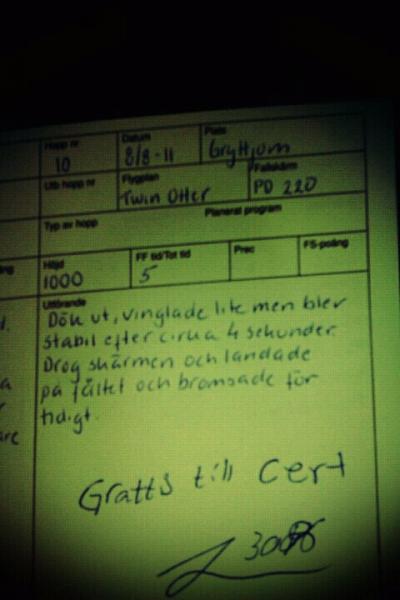 Hopp nr
Datum
Plats
10
8/8-11
Gryttjom
Utb hopp nr
Flygplan
Fallskärm
Twin Otter
PD 220
Typ av hopp
Planerat program
Höjd
FF tid/Tot tid
Prec
FS-poäng
1000
5
Utförande
Dök ut, vinglade lite men blev
stabil efter cirka 4 sekunder.
Drog skärmen och landade
på fältet och bromsade för
tidigt.
Gratts till cert